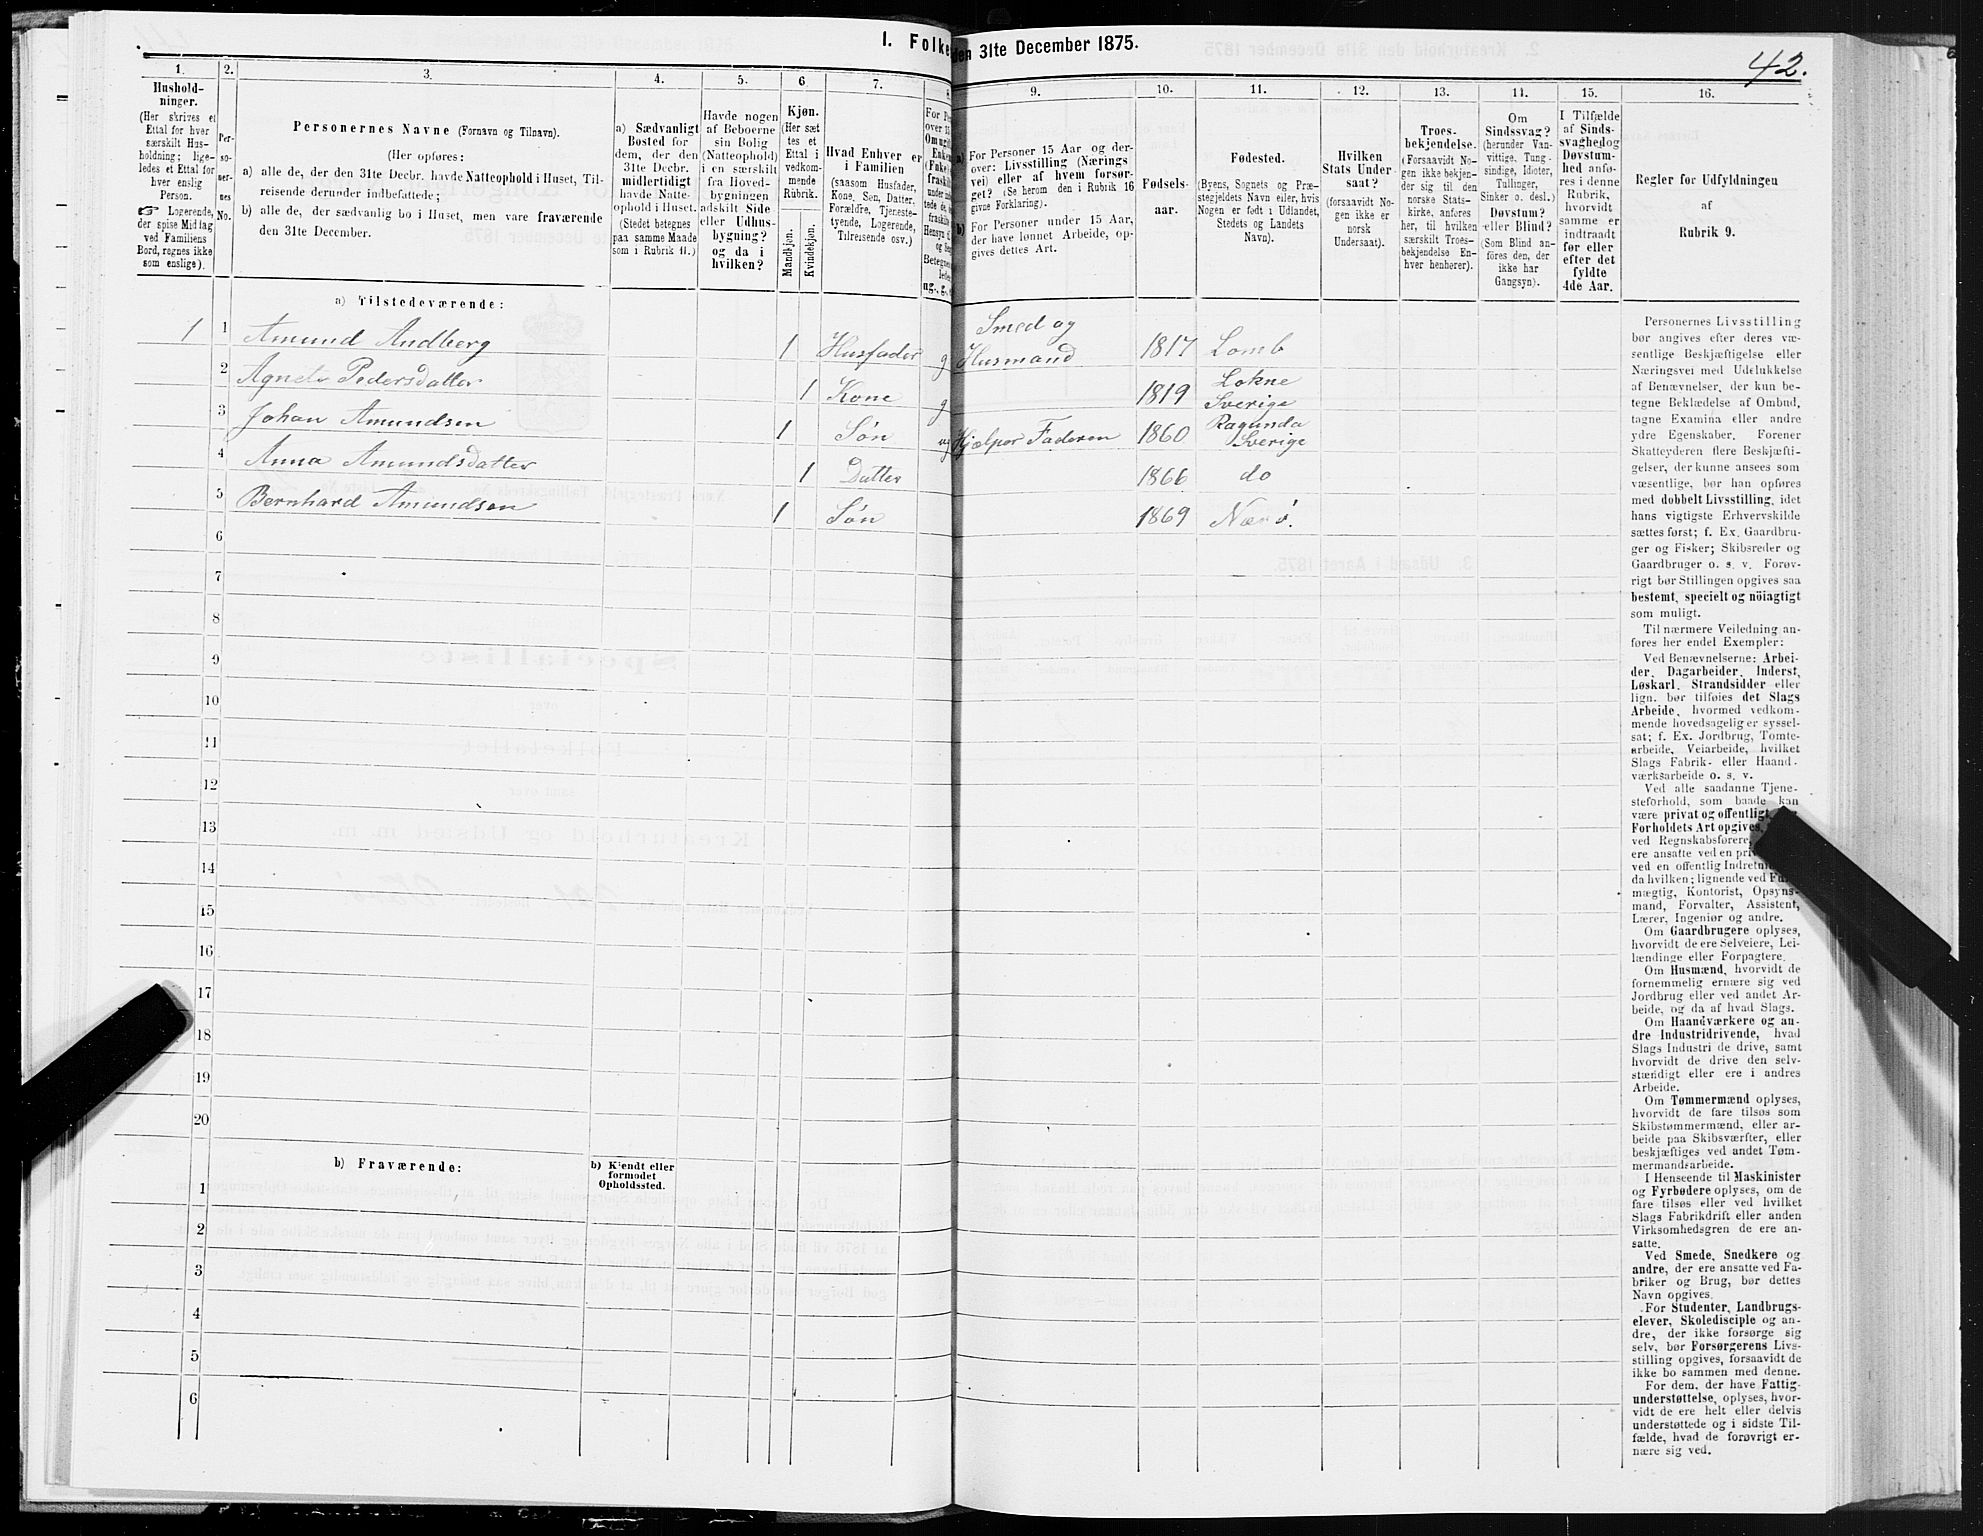 I. Folke
den 31te December 1875.
42.
1.
2.
3.
4.
5.
6
7.
8.
9.
10.
11.
12.
13.
14.
15.
16.
Hushold-
ninger.
(Her skrives et
Ettal for hver
særskilt Hus-
holdning; lige-
ledes et Ettal for
hver enslig
Person.
☞ Logerende,
der spise Middag
ved Familiens
Bord, regnes ikke
som enslige).
Per-
so-
ner-
nes
No.
Personernes Navne (Fornavn og Tilnavn).
(Her opføres:
a) alle de, der den 31te Decbr. havde Natteophold i Huset, Til-
reisende derunder indbefattede;
b) alle de, der sædvanlig bo i Huset, men vare fraværende
den 31te December.
a) Sædvanligt
Bosted for
dem, der den
31te Decbr.
midlertidigt
havde Natte-
ophold i Huset.
(Stedet betegnes
paa samme Maade
som i Rubrik 11.)
Havde nogen
af Beboerne
sin Bolig
(Natteophold)
i en særskilt
fra Hoved-
bygningen
adskilt Side
eller Udhus-
bygning?
og da i
hvilken?
Kjøn.
(Her sæt
tes et
Ettal i
vedkom-
mende
Rubrik.
Mandkjøn.
Kvindekjøn.
Hvad Enhver er
i Familien
(saasom Husfader,
Kone, Søn, Datter,
Forældre, Tjeneste-
tyende, Logerende,
Tilreisende osv.)
a) For Personer 15 Aar og der-
over: Livsstilling (Nærings
vei) eller af hvem forsør-
get? (Se herom den i Rubrik 16
givne Forklaring).
b) For Personer under 15 Aar,
der have lønnet Arbeide, op-
gives dettes Art.
Fødsels-
aar.
Fødested.
(Byens, Sognets og Præ-
stegjeldets Navn eller, hvis
Nogen er født i Udlandet,
Stedets og Landets
Navn).
Hvilken
Stats Under-
saat?
(forsaavidt No-
gen ikke er
norsk
Undersaat).
Troes-
bekjendelse.
(Forsaavidt No-
gen ikke bekjen-
der sig til den
norske Stats-
kirke, anføres
her, til hvilken
særskilt Troes-
bekjendelse En-
hver henhører).
Om
Sindssvag?
(herunder Van-
vittige, Tung-
sindige, Idioter,
Tullinger,
Sinker o. desl.)
Døvstum?
eller Blind?
(Som Blind an-
føres den, der
ikke har
Gangsyn).
I Tilfælde
af Sinds-
svaghed og
Døvstum-
hed anfø-
res i denne
Rubrik,
hvorvidt
samme er
indtraadt
før eller
efter det
fyldte
4de Aar.
Regler for Udfyldningen
af
Rubrik 9.
a) Tilstedeværende:
1 1 Amund Andberg 1 Husfader g Smed og Husmand 1817 Lomb
2 Agnete Pedersdatter 1 Kone g 1819 Lokne Sverige
3 Johan Amundsen 1 Søn ug Hjælper Faderen 1860 Ragunda Sverige
4 Anna Amundsdatter 1 Datter 1866 do
5 Bernhard Amundsen 1 Søn 1869 Nærø.
6
7
8
9
10
11
12
13
14
15
16
17
18
19
20
b) Fraværende:
b) Kjendt eller
formodet
Opholdssted.
1
2
3
4
5
6
Personernes Livsstilling
bør angives efter deres væ-
sentlige Beskjæftigelse eller
Næringsvei med Udelukkelse
af Benævnelser, der kun be-
tegne Beklædelse af Ombud,
tagne Examina eller andre
ydre Egenskaber. Forener
Skatteyderen flere Beskjæfti-
gelser, der kunne ansees som
væsentlige, bør han opføres
med dobbelt Livsstilling, idet
hans vigtigste Erhvervskilde
sættes først; f. Ex. Gaardbru-
ger og Fisker; Skibsreder og
Gaardbruger o. s. v. Forøv-
rigt bør Stillingen opgives saa
bestemt, specielt og nöiagtigt
som muligt.
Til nærmere Veiledning an-
føres her endel Exempler:
Ved Benævnelserne: Arbei-
der, Dagarbeider, Inderst,
Løskarl, Strandsidder eller
lign. bør tilføies det Slags
Arbeide, hvormed vedkom-
mende hovedsagelig er syssel-
sat; f. Ex. Jordbrug, Tomte-
arbeide, Veiarbeide, hvilket
Slags Fabrik- eller Haand-
værksarbeide o. s. v.
Ved alle saadanne Tjene-
steforhold, som baade kan
være privat og offentligt,
Forholdets Art opgives,
ved Regnskabsførere,
ere ansatte ved en
ved en offentlig
da hvilken; lignende ved
mægtig, Kontorist, Opsyns-
mand, Forvalter, Assistent,
Lærer, Ingeniør og andre.
Om Gaardbrugere oplyses,
hvorvidt de ere Selveiere, Lei-
lændinge eller Forpagtere.
Om Husmænd, hvorvidt de
fornemmelig ernære sig ved
Jordbrug eller ved andet Ar-
beide, og da af hvad Slags.
Om Haandværkere og an-
dre Industridrivende, hvad
Slags Industri de drive, samt
hvorvidt de drive den selv-
stændigt eller ere i andres
Arbeide.
Om Tømmermænd oplyses,
hvorvidt de fare tilsøs som
Skibstømmermænd, eller ar-
beide paa Skibsværfter, eller
beskjæftiges ved andet Tøm-
mermandsarbeide.
I Henseende til Maskinister
og Fyrbødere oplyses, om de
fare tilsøs eller ved hvilket
Slags Fabrikdrift eller anden
Virksomhedsgren de ere an-
satte.
Ved Smede, Snedkere og
andre, der ere ansatte ved Fa-
briker og Brug, bør dettes
Navn opgives.
For Studenter, Landbrugs-
elever, Skoledisciple og an-
dre, der ikke forsørge sig
selv, bør Forsørgerens Livs-
stilling opgives, forsaavidt de
ikke bo sammen med denne.
For dem, der have Fattig-
understøttelse, oplyses, hvor-
vidt de ere helt eller delvis
understøttede og i sidste Til-
fælde, hvad de forøvrigt er-
nære sig ved.